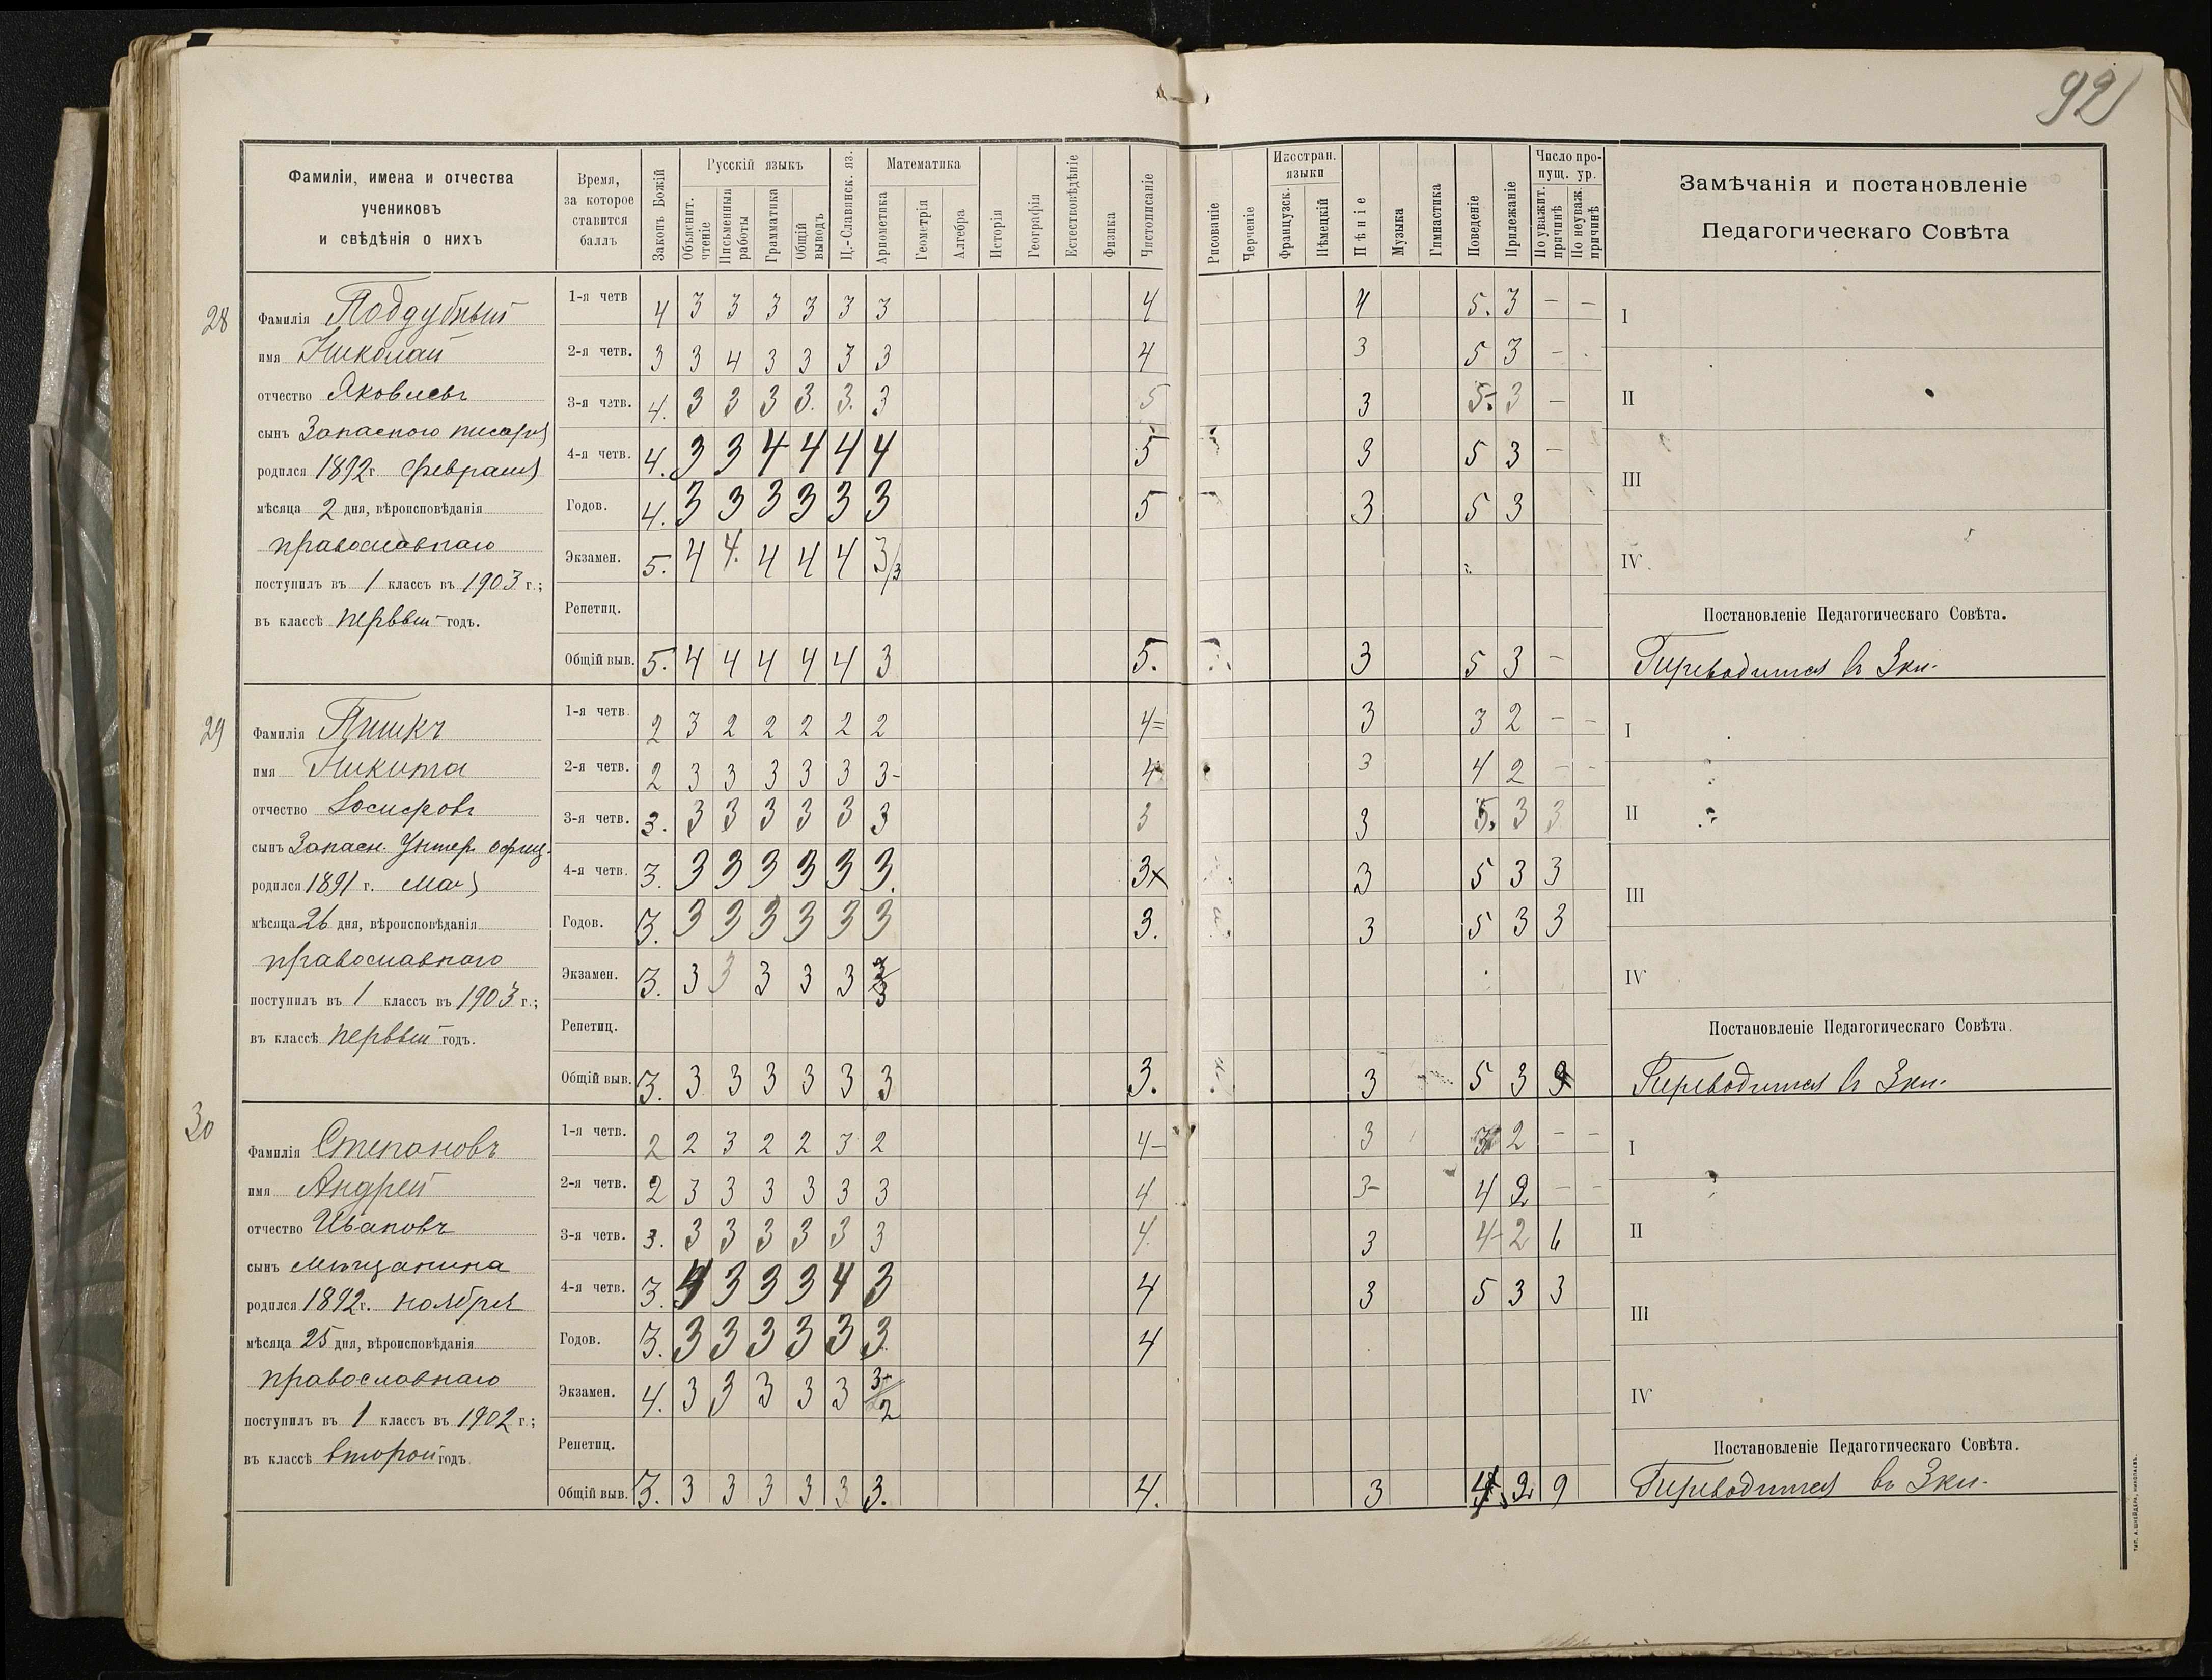 92
Фамиліи, имена и отчества
учениковъ
и свѣдѣнія о нихъ
Время,
за которое
ставится
баллъ
Законъ Божій
Русскій языкъ
Объяснит.
чтеніе
Письменныя
работы
Грамматика
Общій
выводъ
Ц.-Славянск. яз.
Математика
Ариѳметика
Геометрія
Алгебра
Исторія
Географія
Естествовѣдѣніе
Физика
Чистописаніе
Рисованіе
Черченіе
Иностран.
языки
Французск.
Нѣмецкій
Пѣніе
Музыка
Гимнастика
Поведеніе
Прилежаніе
Число про-
пущ. ур.
По уважит.
причинѣ
По неуваж.
причинѣ
Замѣчанія и постановленіе
Педагогическаго Совѣта
28
Фамилія Поддубный
имя Николай
отчество Яковлевъ
сынъ Запасного писаря
родился 1892 г. февраля
мѣсяца 2 дня, вѣроисповѣданія
православнаго
поступилъ въ 1 классъ въ 1903 г.;
въ классѣ первый годъ.
1-я четв 4 3 3 3 3 3 3 4 4 5. 3 — —
2-я четв. 3 3 4 3 3 3 3 4 3 5 3 —
3-я четв. 4. 3 3 3 3. 3. 3 5 3 5- 3 —
4-я четв. 4. 3 3 4 4 4 4 5 3 5 3 —
Годов. 4. 3 3 3 3 3 3 5 3 5 3
Экзамен. 5. 4 4. 4 4 4 3/3
Репетиц.
Общій выв. 5. 4 4 4 4 4 3 5. 3 5 3 —
I
II
III
IV
Постановленіе Педагогическаго Совѣта.
Переводится въ 3 кл.
29
Фамилія Пишкъ
имя Никита
отчество Іосифовъ
сынъ Запасн. Унтер. офиц.
родился 1891 г. Мая
мѣсяца 26 дня, вѣроисповѣданія
православнаго
поступилъ въ 1 классъ въ 1903 г.;
въ классѣ первый годъ.
1-я четв. 2 3 2 2 2 2 2 4= 3 3 2 — —
2-я четв. 2 3 3 3 3 3 3- 4 3 4 2 — -
3-я четв. 3. 3 3 3 3 3 3 3 3 5. 3 3
4-я четв. 3. 3 3 3 3 3 3. 3 3 5 3 3
Годов. 3. 3 3 3 3 3 3 3. 3 5 3 3
Экзамен. 3. 3 3 3 3 3 3/3
Репетиц.
Общій выв. 3. 3 3 3 3 3 3 3. 3 5 3
I
II
III
IV
Постановленіе Педагогическаго Совѣта.
Переводится въ 3 кл.
30
Фамилія Степановъ
имя Андрей
отчество Ивановъ
сынъ мѣщанина
родился 1892 г. ноября
мѣсяца 25 дня, вѣроисповѣданія
православнаго
поступилъ въ 1 классъ въ 1902 г.;
въ классѣ второй годъ.
1-я четв. 2 2 3 2 2 3 2 4- 3 2 — —
2-я четв. 2 3 3 3 3 3 3 4 3- 4 2 — -
3-я четв. 3. 3 3 3 3 3 3 4. 3 4- 2 6
4-я четв. 3. 4 3 3 3 4 3 4 3 5 3 3
Годов. 3. 3 3 3 3 3 3. 4
Экзамен. 4. 3 3 3 3 3 3+/2
Репетиц.
Общій выв. 3. 3 3 3 3 3 3. 4. 3 4 2 9
I
II
III
IV
Постановленіе Педагогическаго Совѣта.
Переводится въ 3 кл.
Тип. А. Шнейдеръ, Николаевъ.